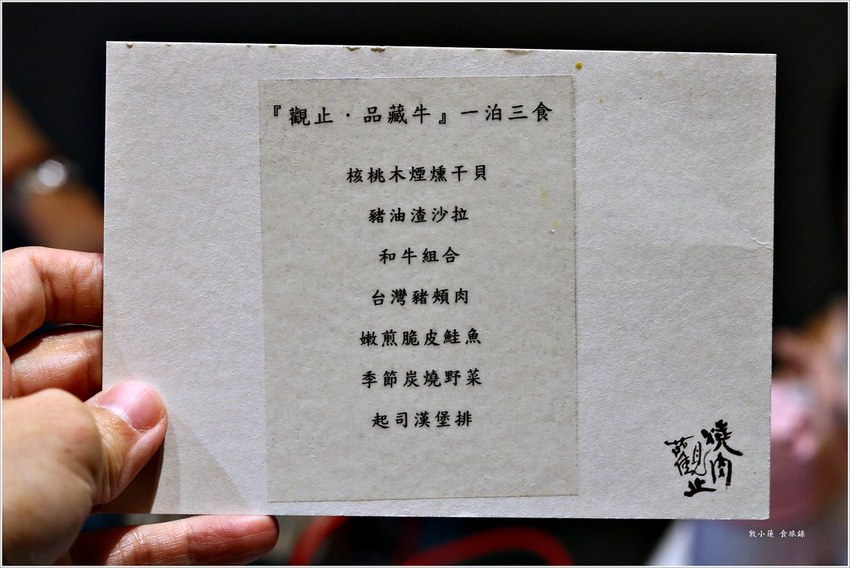 『觀止·品藏牛』一泊三食
核桃木煙燻干貝
豬油渣沙拉
和牛組合
台灣豬頰肉
嫩煎脆皮鮭魚
季節炭燒野菜
起司漢堡排
燒肉
觀止
敦小蓮 食旅錄